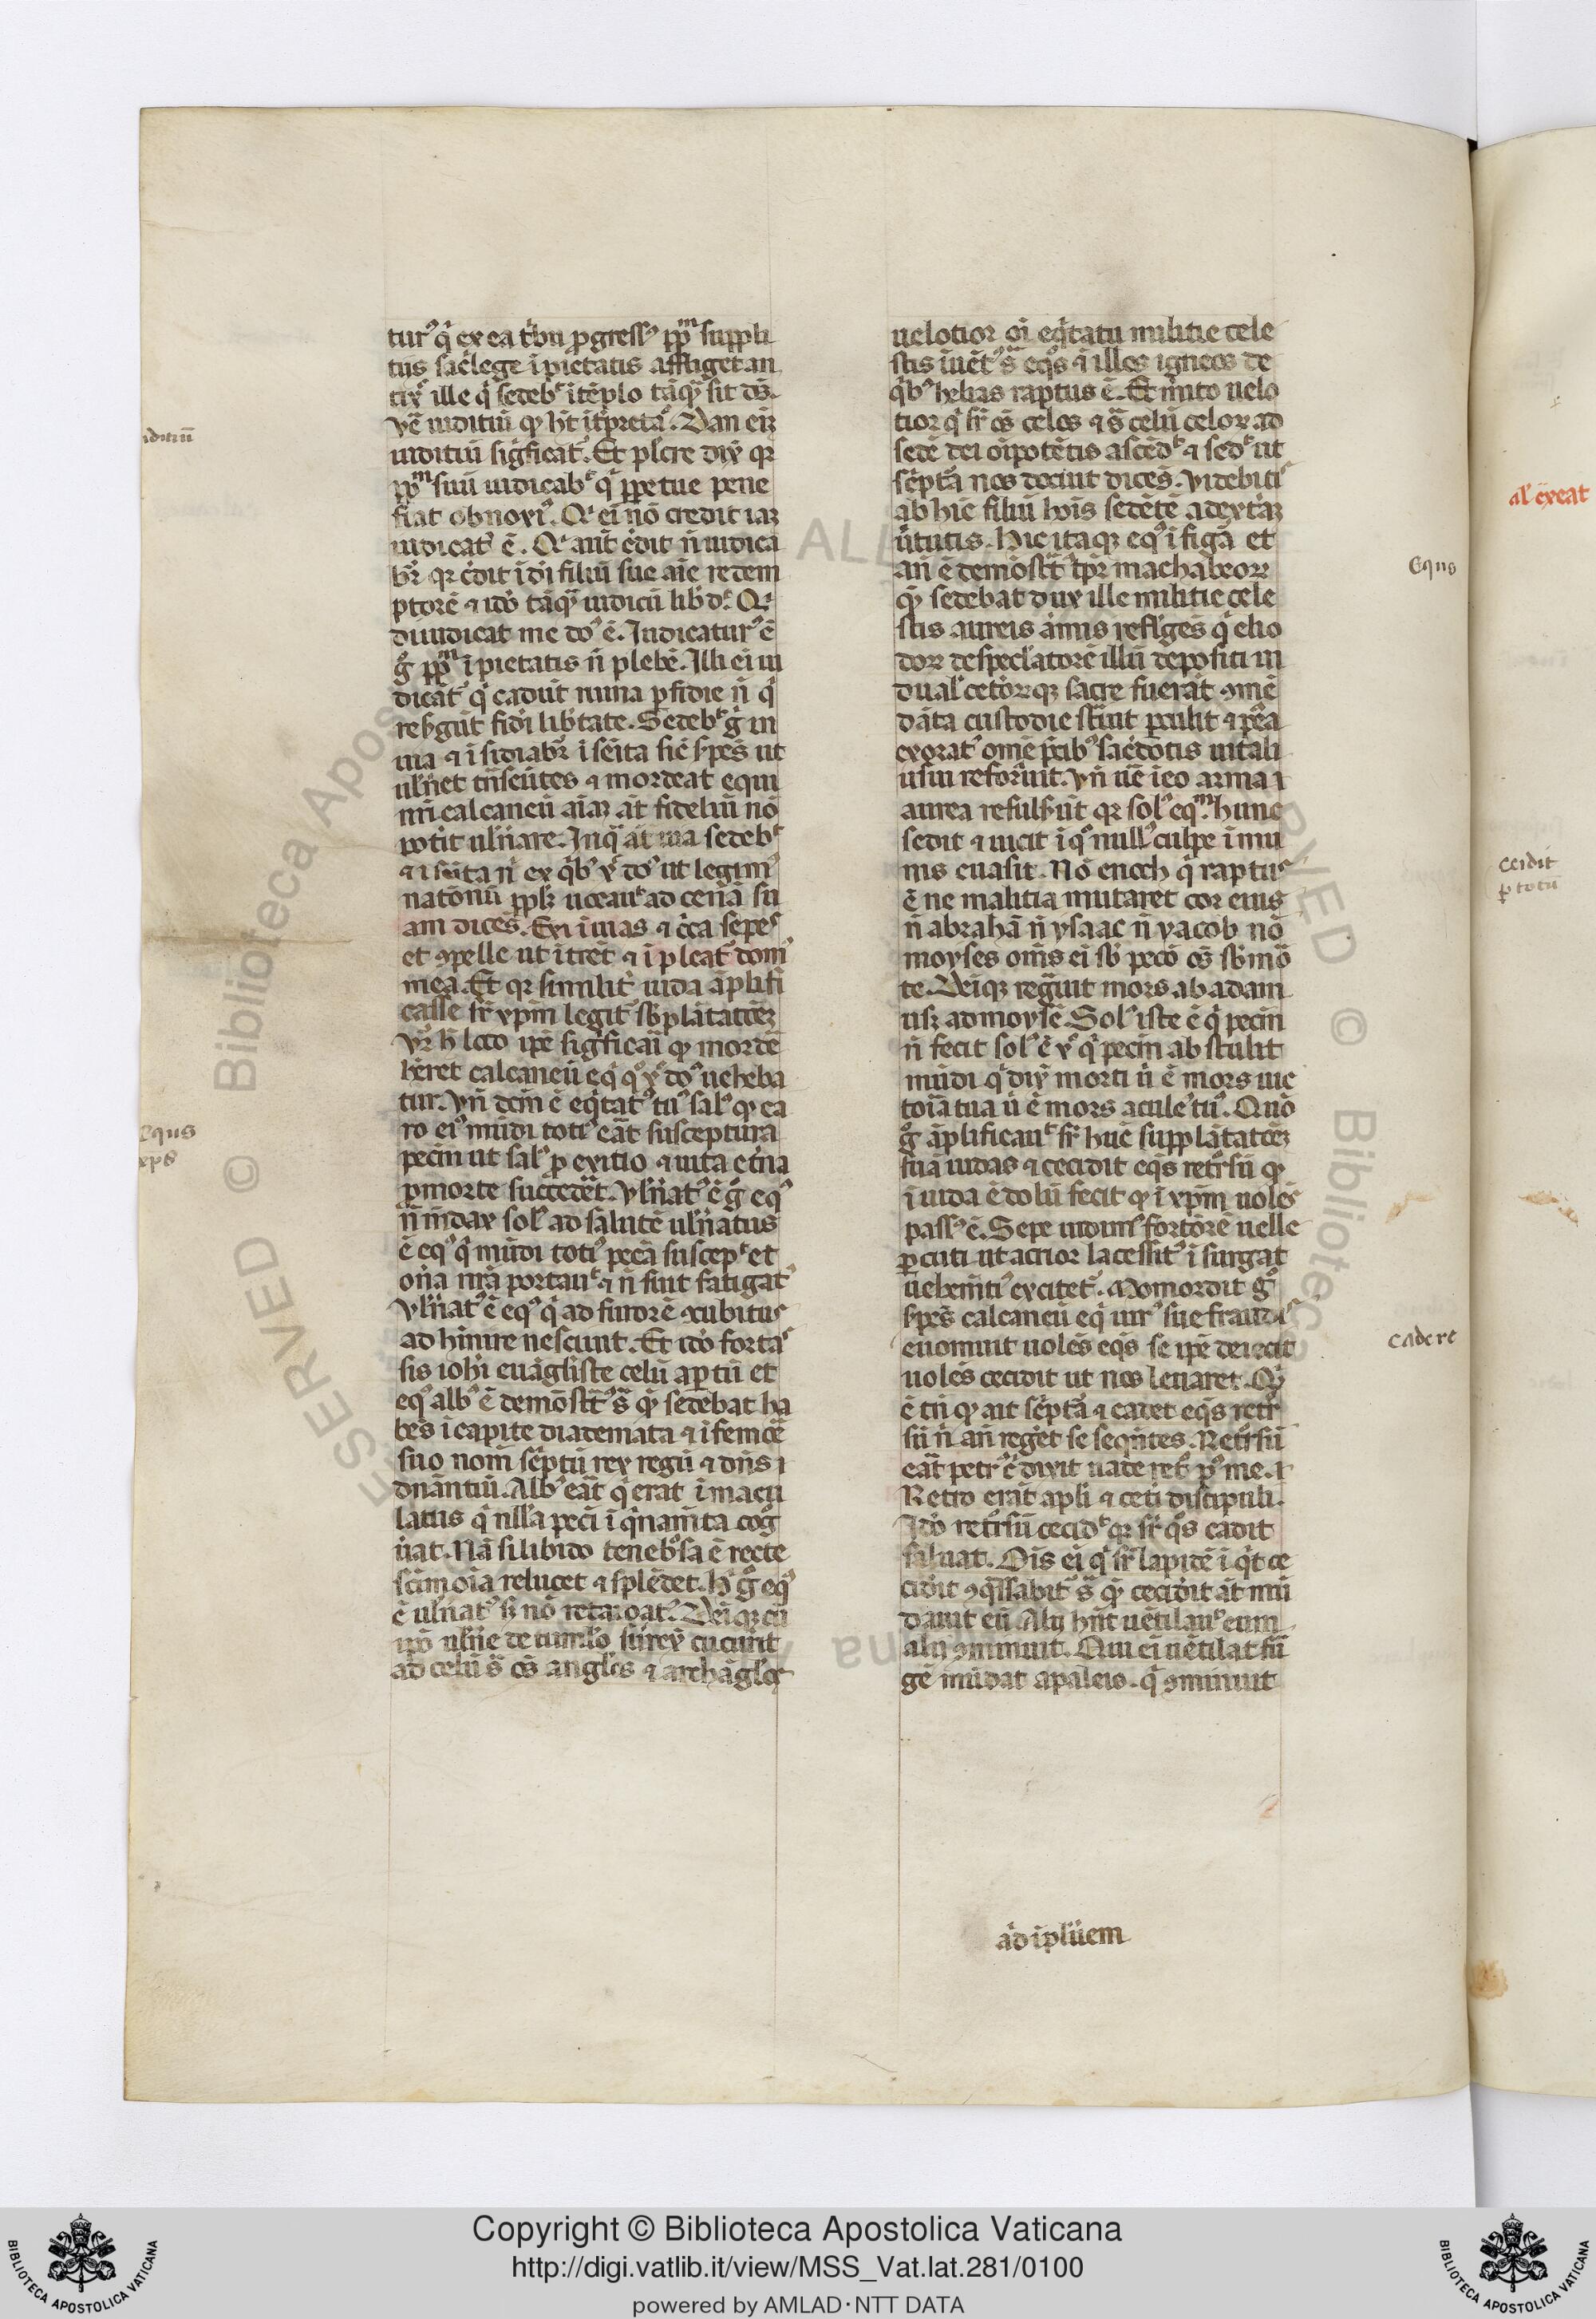 iditiū
tur᷒ q̇ ex ea t̾bu p̄gress᷒ pp̄m suppli
tiis sac̾lege īpietatis affliget an
tix᷒ ille q̇ sedeb᷒ ītēplo tāq̄ sit ds̄.
Vē iuditiū qꝫ h̾t īt̾p̄retat᷒. Dan eiꝫ
iuditiū sigficat᷒. Et pl̾cre dix̾ qꝛ
pp̄m suū iudicab᷒ q̇ ꝑpetue pene
fiat obnoxi᷒. Q᷒ ei nō credit iaꝫ
iudicat᷒ ē. Q᷒ aūt c̾dit n̄ iudica
b̾r qꝛ c̾dit ī di filiū sue aīe redem
ptorē ⁊ idō tāq̄ iudiciū lib̾ d᷒. Q᷒
diiudicat me do᷒ ē. Iudicatur᷒ ē
g᷒ pp̄m īpietatis n̄ plebē. Illi ei iu
dicāt᷒ q̇ cadūt ruina ꝑfidie n̄ q̇
resꝰgūt fidi lib̾tate. Sedeb᷒ g̾ in
uia ⁊ īsidiab̾r ī sēita sic sꝑēs ut
uln̾et trāseūtes ⁊ mordeat equi
nri calcaneū aīaꝫ āt fideliū nō
pot̾it uln̾are. Inq̄ āt uia sedeb᷒
⁊ ī sēita n̄ ex q̾b᷒ x᷒ do᷒ ut legim᷒
nationū pp̄lꝫ uocau᷒ ad cenā su
am dicēs. Exi ī uias ⁊ c̾ca sepes
et ꝯpelle ut ītrēt ⁊ īpleat᷒ dom᷒
mea. Et qꝛ similit᷒ iuda āplifi
casse sr̄ xp̄m legit᷒ sb̾plātatōeꝫ
vr̄ h̄ loco ipē sigficari qꝫ mordē
b̾eret calcaneū eq̇ q᷒ x᷒ do᷒ ueheba
tur. Vn̄ dc̄m ē eq̇tat᷒ tu᷒ sal᷒ qꝫ ca
ro ei᷒ mūdi toti᷒ eāt susceptura
pec̄m ut sal᷒ ꝑ exitio ⁊ uita et̾na
ꝑ morte succederet. Vln̾at᷒ ē g̾ eq᷒
n̄ mēdax sol᷒ ad salutē uln̾atus
ē eq᷒ q̇ mūdi toti᷒ pecā suscep᷒ et
on̾a nr̄a portau᷒ ⁊ n̄ fuit fatigat᷒
Vln̾at᷒ ē eq᷒ q̇ ad furorē ꝯcubitus
ad hinire nesciunt. Et idō fortas
sis iohi euāgliste celū aꝑtū et
eq᷒ alb᷒ ē demōstrat᷒ s̄ qꝫ sedebat ha
bēs ī capite diademata ⁊ ī femōe
suo nom̄ sc̾ptū rex regū ⁊ dn̄s
dn̄antiū. Alb᷒ eāt q̇ erat īmacu
latus q̇ nlla pecī īq̇namta cog
uat. Nā si libido tenebrosa ē recte
sc̄īmoīa relucet ⁊ splēdet. h̾ g̾ eq᷒
ē uln̾at᷒ sꝫ nō retardat᷒. Deiqꝫ cū
ad celū s̄ os̄ angl̾os ⁊ archāgl̾os
Equs
xp̄s
uelotior oī eq̇tatu militie cele
stis īuēt᷒ s̄ eq̇s ⁊ illos igneos de
q̇b᷒ helias raptus ē. Et m̾ito uelo
tior q̇ sr̄ os̄ celos ⁊ s̄ celū celoꝝ ad
sedē dei oīpotētis ascēd᷒ ⁊ sed᷒ ut
sc̾ptā nos dociut dicēs. Videbitis
ab hic filiū hoīs sedētē a dext̾aꝫ
ū̾tutis. Hic itaqꝫ eq᷒ ī figā et
an̄ ē demōstrat᷒ tp̄r machabeoꝝ
qꝫ sedebat dux ille militie cele
stis aureis armis reflges q̇ elio
doꝝ despectatorē illū depositi ui
dual᷒ cetōꝝqꝫ sacre fuerāt ꝯmē
data custodie st̾auit ꝑculit ⁊ pꝰea
exorat᷒ omē p̾cib᷒ sac̾dotis uitali
usui reforauit. Vn̄ uē ī eo arma
aurea refulsꝫūt qꝛ sol᷒ eq᷒m hunc
sedit ⁊ uicit ī q᷒ null᷒ culpe īmu
nis euasit. Nō enoch q̇ raptus
ē ne malitia mutaret cor eius
n̄ abrahā n̄ ysaac n̄ yacob nō
moyses oms̄ ei sb̾ pecō os̄ sb̾ mō
te. Deiqꝫ regauit mors ab adam
usqꝫ ad moysē. Sol᷒ iste ē q̇ pec̄m
n̄ fecit sol᷒ ē x᷒ q̇ pec̄m abstulit
mūdi q̇ dix̾ morti ū ē mors uic
toīa tua ū ē mors acule᷒ tu᷒. Quō
g̾ āplificau᷒ sr̄ hūc supplātatōeꝫ
suā iudas ⁊ cecidit eq̇s ret̾rsū qꝫ
ī iuda ē dolū fecit qꝫ ī xp̄m uolēs
pass᷒ ē. Sepe uidim᷒ fortiorē uelle
ꝑcuti ut acrior lacessit᷒ īsurgat
uehemēti᷒ excitet᷒. Momordit g̾
sꝑēs calcaneū eq̇ uir᷒ sue fraudis
euomuit uolēs eq̇s se ipē deiecit
uolēs cecidit ut nos leuaret. Q᷒
ē tn̄ qꝫ ait sc̾ptā ⁊ cadet eq̇s ret̾r
sū n̄ an̄ reget se seq̇ntes. Ret̾rsū
eāt petr᷒ c̄ dixit uade ret̾ p᷒ me.
Retro erāt apl̾i ⁊ cet̾i discipuli.
Idō ret̾rsū cecid᷒ qꝛ sr̄ q̇s cadit
saluat. Ois ei q̇ sr̄ lapidē īq̇t ce
cidit ꝯq̄ssabit᷒ s̄ qꝫ cecidit āt mū
dauit eū. Alij hūt uētilau᷒ eum
alij ꝯminuit. Qui ei uētilat fū
gē mūdat a paleis. q̇ ꝯminuit
Equs
cadere
ad īplūem
al᷒ exeat
Cecidit
ꝑ totū
Copyright © Biblioteca Apostolica Vaticana
http://digi.vatlib.it/view/MSS_Vat.lat.281/0100
powered by AMLAD·NTT DATA
BIBLIOTECA APOSTOLICA VATICANA
BIBLIOTECA APOSTOLICA VATICANA